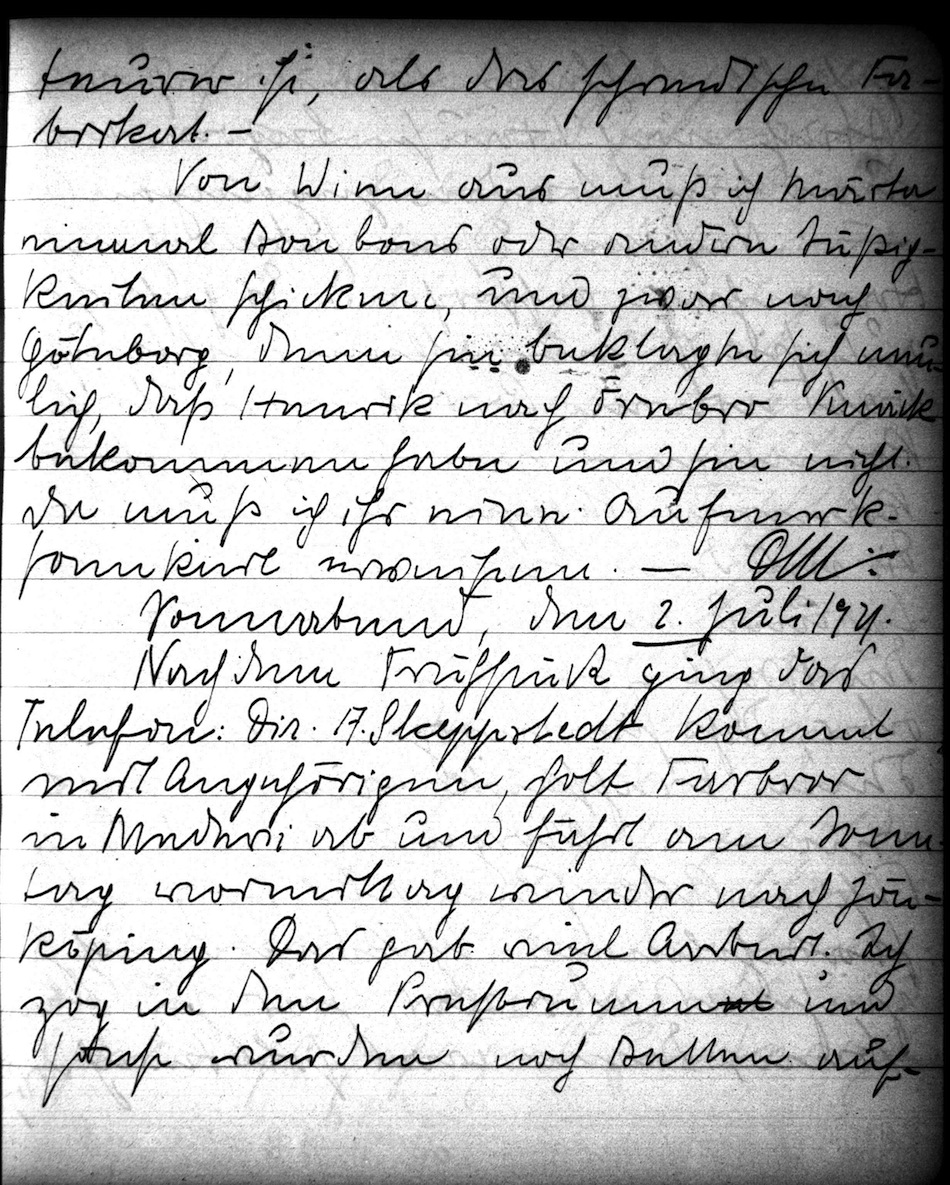 teurer ist, als das schwedische Fa-
brikat. -
Von Wien aus muß ich Märta
einmal Bonbons oder andern Süßig-
keiten schicken, und zwar nach
Göteborg, denn sie beklagte sich neu-
lich, daß Henrik nach Örebro Knäck
bekommen habe und sie nicht.
Da muß ich ihr eine Aufmerk-
samkeit erweisen. —
Sonnabend, den 2. Juli 1921.
Nach dem Frühstück ging das
Telefon: Dir. A. Skeppstedt kommt
mit Angehörigen, holt Farbror
in Medevi ab und fährt am Sonn-
tag vormittag wieder nach Jön-
köping. Das gab viel Arbeit. Ich
zog in den und
sonst wurden noch Betten auf-